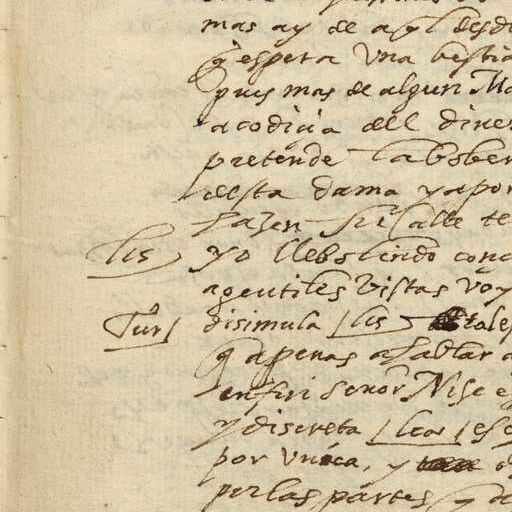 mas ay de aql desd
q espera Una bestia
pues mas de algun Ma
acodicia dell diner
pretende la bober
desta dama yapor
hazen Calle te
lis yo llebo lindo conc
agentiles Vistas Voy
Tur disimula | lis tales
q apenas a hablar a
enfin Senor Nise es
y discreta | leo | es
por Unica, y
perlas partes y a